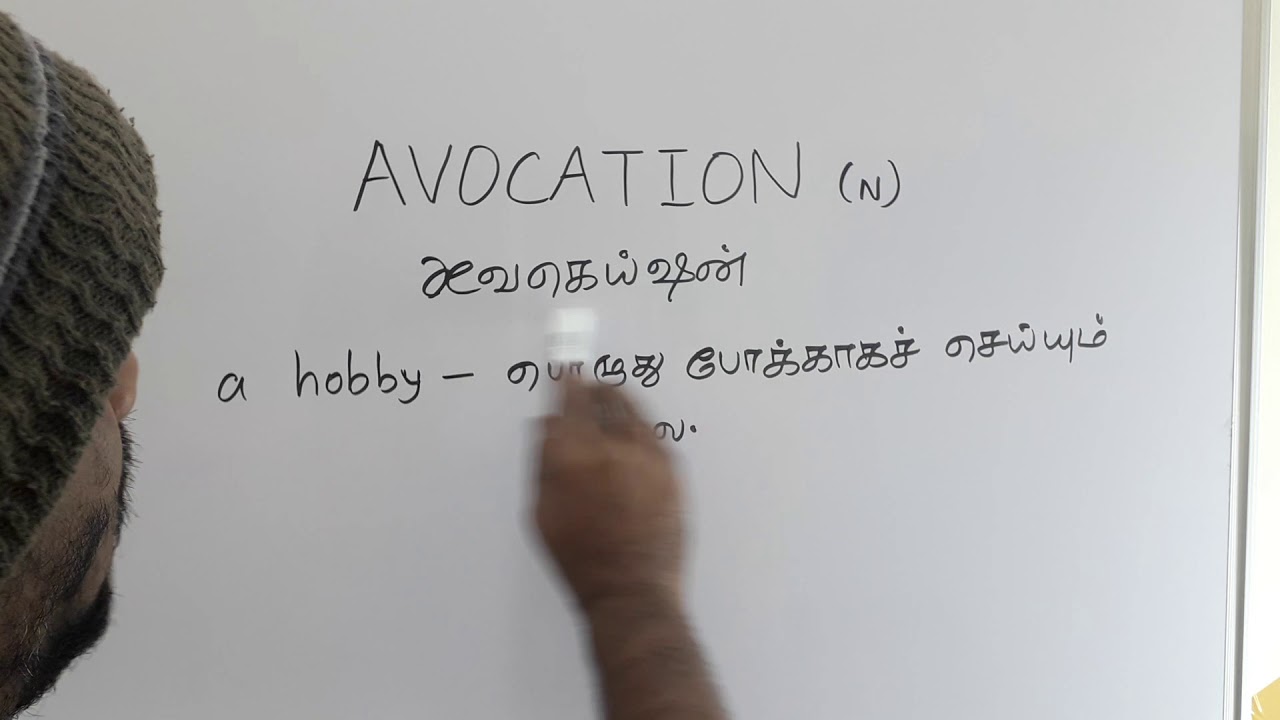 AVOCATION (N)
அவகெய்ஷன்
a hobby – பொழுது போக்காகச் செய்யும்